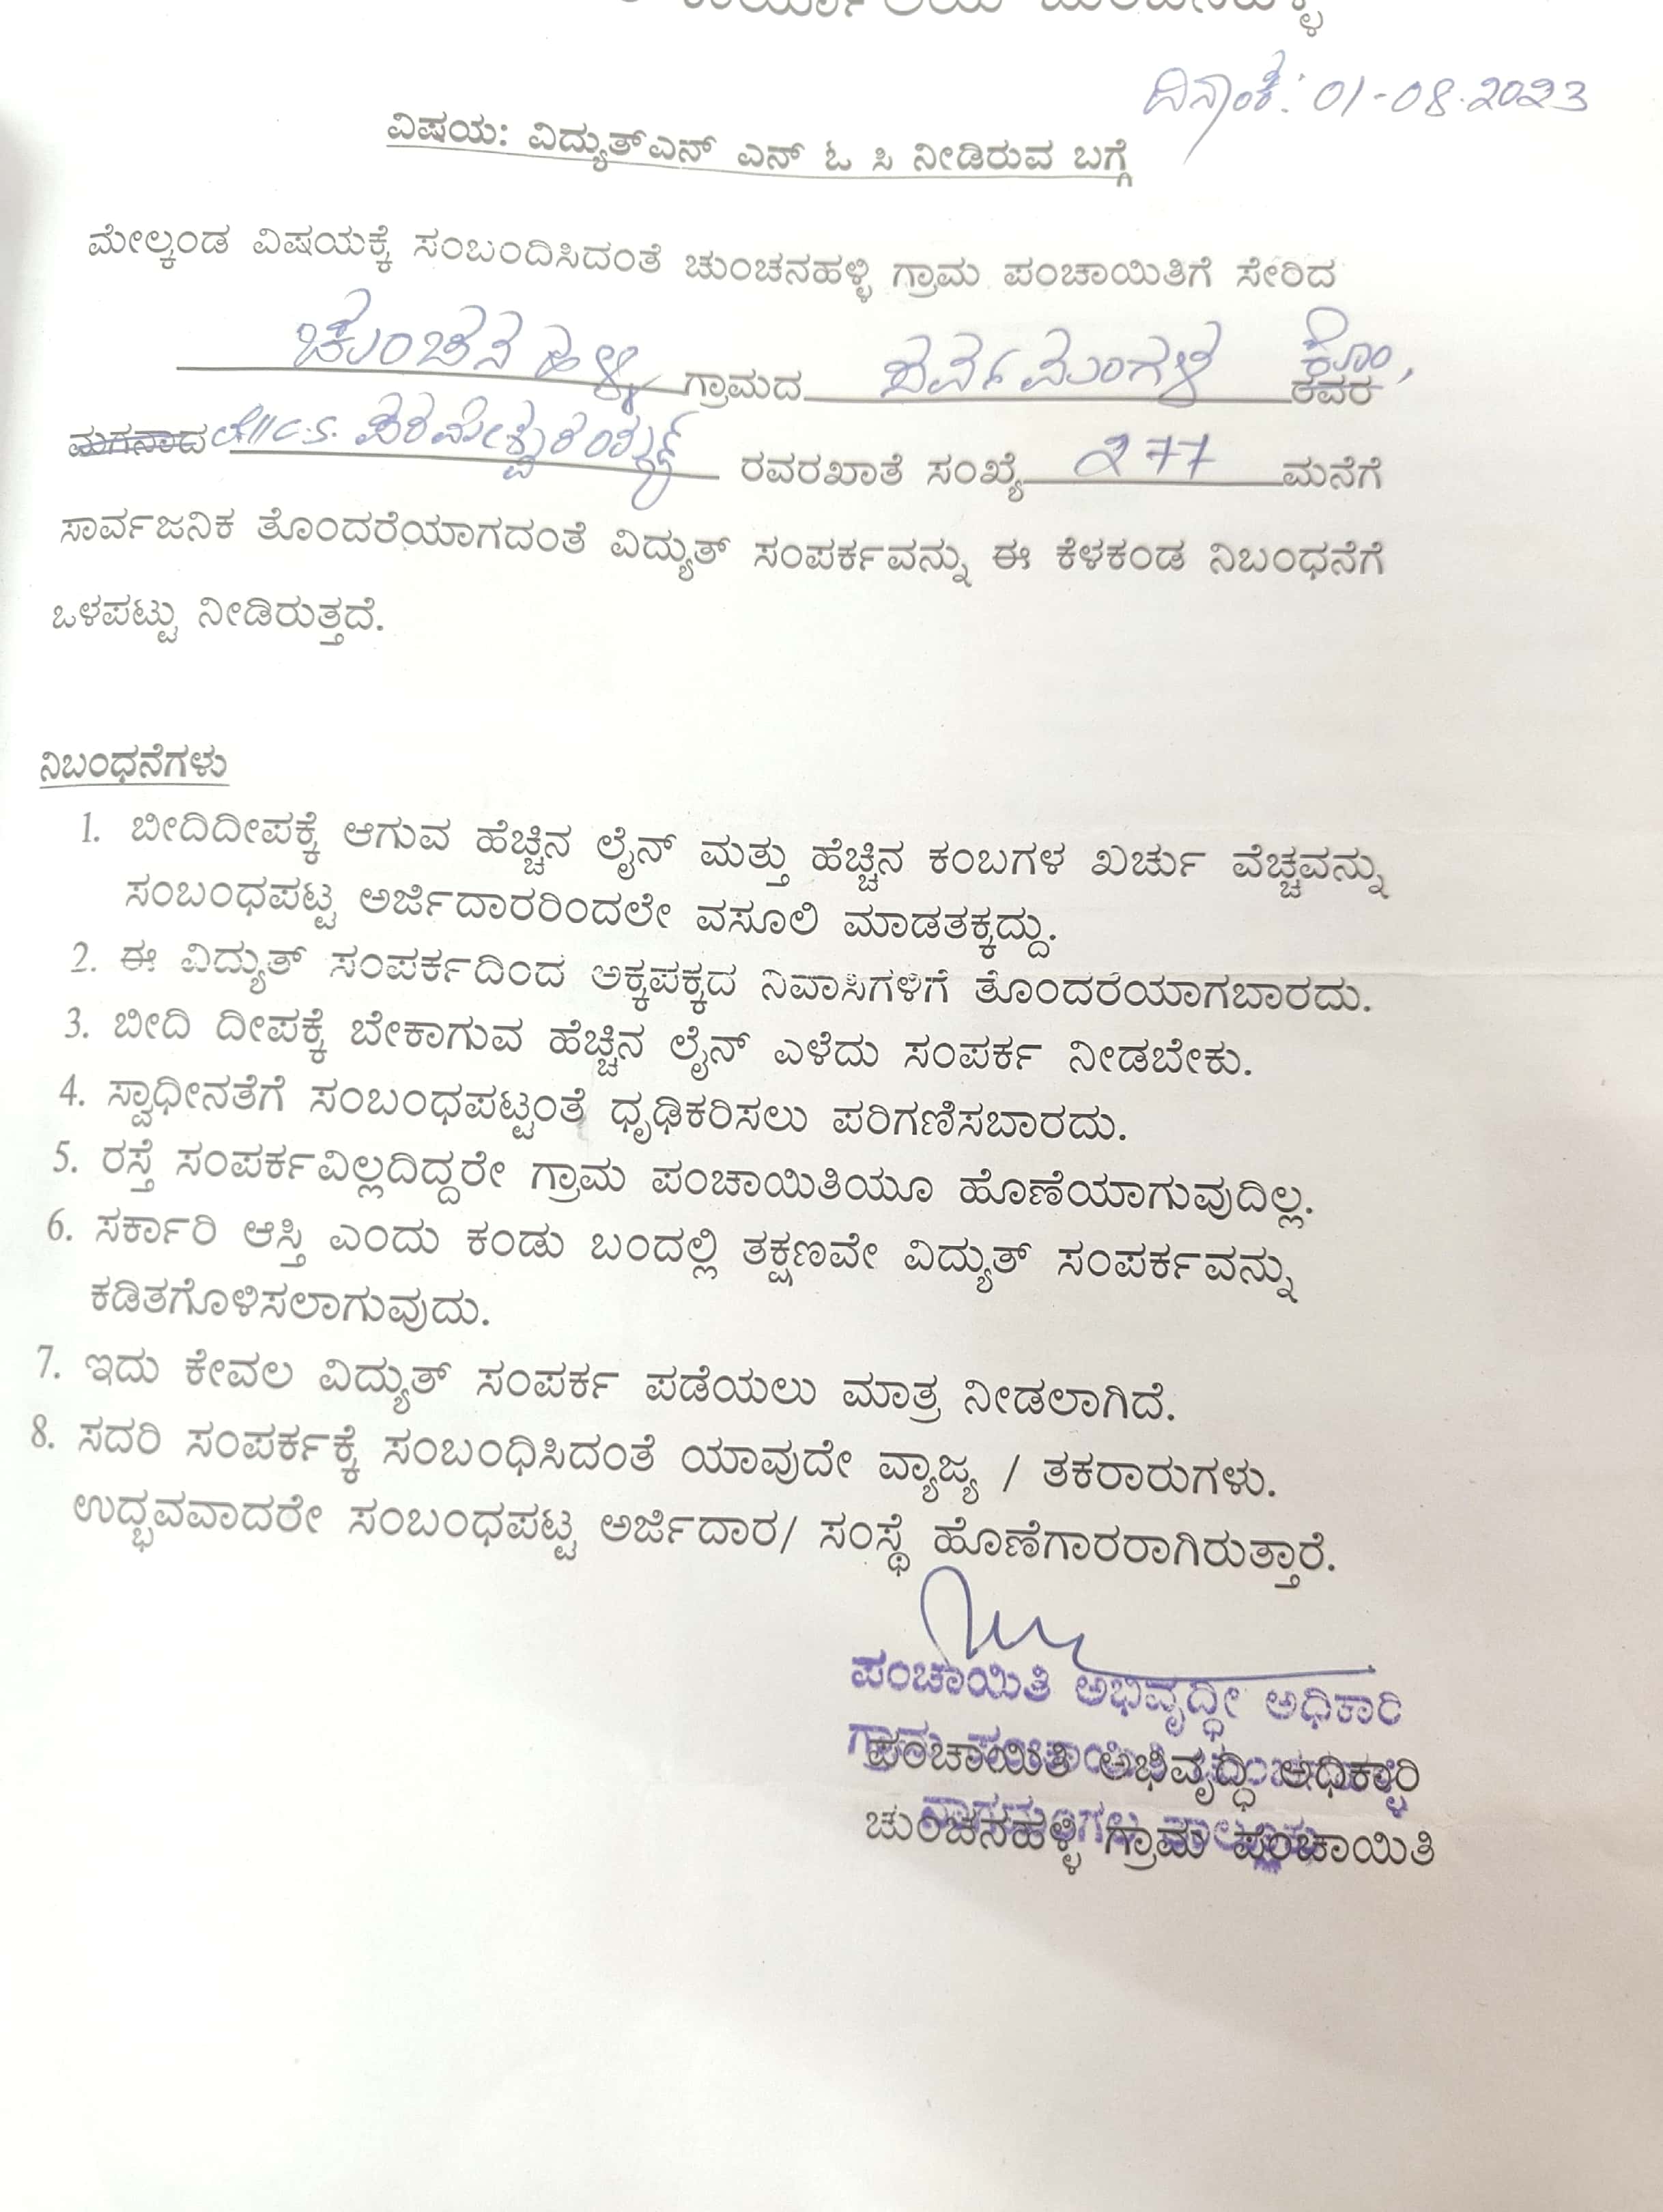 ದಿನಾಂಕ: 01-08-2023
ವಿಷಯ: ವಿದ್ಯುತ್‌ಎನ್ ಎನ್ ಓ ಸಿ ನೀಡಿರುವ ಬಗ್ಗೆ
ಮೇಲ್ಕಂಡ ವಿಷಯಕ್ಕೆ ಸಂಬಂದಿಸಿದಂತೆ ಚುಂಚನಹಳ್ಳಿ ಗ್ರಾಮ ಪಂಚಾಯಿತಿಗೆ ಸೇರಿದ
ಚುಂಚನಹಳ್ಳಿ ಗ್ರಾಮದ ಕೋಂ, ರವರ
ಮಗನಾದ C.S. ಪರಮೇಶ್ವರಯ್ಯ ರವರಖಾತೆ ಸಂಖ್ಯೆ 277 ಮನೆಗೆ
ಸಾರ್ವಜನಿಕ ತೊಂದರೆಯಾಗದಂತೆ ವಿದ್ಯುತ್ ಸಂಪರ್ಕವನ್ನು ಈ ಕೆಳಕಂಡ ನಿಬಂಧನೆಗೆ
ಒಳಪಟ್ಟು ನೀಡಿರುತ್ತದೆ.
ನಿಬಂಧನೆಗಳು
1. ಬೀದಿದೀಪಕ್ಕೆ ಆಗುವ ಹೆಚ್ಚಿನ ಲೈನ್ ಮತ್ತು ಹೆಚ್ಚಿನ ಕಂಬಗಳ ಖರ್ಚು ವೆಚ್ಚವನ್ನು
ಸಂಬಂಧಪಟ್ಟ ಅರ್ಜಿದಾರರಿಂದಲೇ ವಸೂಲಿ ಮಾಡತಕ್ಕದ್ದು.
2. ಈ ವಿದ್ಯುತ್ ಸಂಪರ್ಕದಿಂದ ಅಕ್ಕಪಕ್ಕದ ನಿವಾಸಿಗಳಿಗೆ ತೊಂದರೆಯಾಗಬಾರದು.
3. ಬೀದಿ ದೀಪಕ್ಕೆ ಬೇಕಾಗುವ ಹೆಚ್ಚಿನ ಲೈನ್ ಎಳೆದು ಸಂಪರ್ಕ ನೀಡಬೇಕು.
4. ಸ್ವಾಧೀನತೆಗೆ ಸಂಬಂಧಪಟ್ಟಂತೆ ಧೃಢಿಕರಿಸಲು ಪರಿಗಣಿಸಬಾರದು.
5. ರಸ್ತೆ ಸಂಪರ್ಕವಿಲ್ಲದಿದ್ದರೇ ಗ್ರಾಮ ಪಂಚಾಯಿತಿಯೂ ಹೊಣೆಯಾಗುವುದಿಲ್ಲ.
6. ಸರ್ಕಾರಿ ಆಸ್ತಿ ಎಂದು ಕಂಡು ಬಂದಲ್ಲಿ ತಕ್ಷಣವೇ ವಿದ್ಯುತ್ ಸಂಪರ್ಕವನ್ನು
ಕಡಿತಗೊಳಿಸಲಾಗುವುದು.
7. ಇದು ಕೇವಲ ವಿದ್ಯುತ್ ಸಂಪರ್ಕ ಪಡೆಯಲು ಮಾತ್ರ ನೀಡಲಾಗಿದೆ.
8. ಸದರಿ ಸಂಪರ್ಕಕ್ಕೆ ಸಂಬಂಧಿಸಿದಂತೆ ಯಾವುದೇ ವ್ಯಾಜ್ಯ / ತಕರಾರುಗಳು.
ಉದ್ಭವವಾದರೇ ಸಂಬಂಧಪಟ್ಟ ಅರ್ಜಿದಾರ/ ಸಂಸ್ಥೆ ಹೊಣೆಗಾರರಾಗಿರುತ್ತಾರೆ.
ಪಂಚಾಯಿತಿ ಅಭಿವೃದ್ಧೀ ಅಧಿಕಾರಿ
ಪಂಚಾಯಿತಿ ಅಭಿವೃದ್ಧಿ ಅಧಿಕಾರಿ
ಚುಂಚನಹಳ್ಳಿ ಗ್ರಾಮ ಪಂಚಾಯಿತಿ